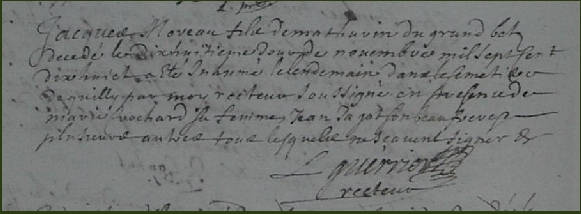 Jacques Moreau fils de mathurin du grand bot
decedé le dix huitieme Jour de nouembre mil sept sent
dix huict a esté Inhumé le lendemain dans le simetiere
de par moy recteur soussigné en presence de
marie rochard sa femme Jean son beau frere
plusieurs autres tous lesquels ne sçauent signer &
L guerrior
recteur